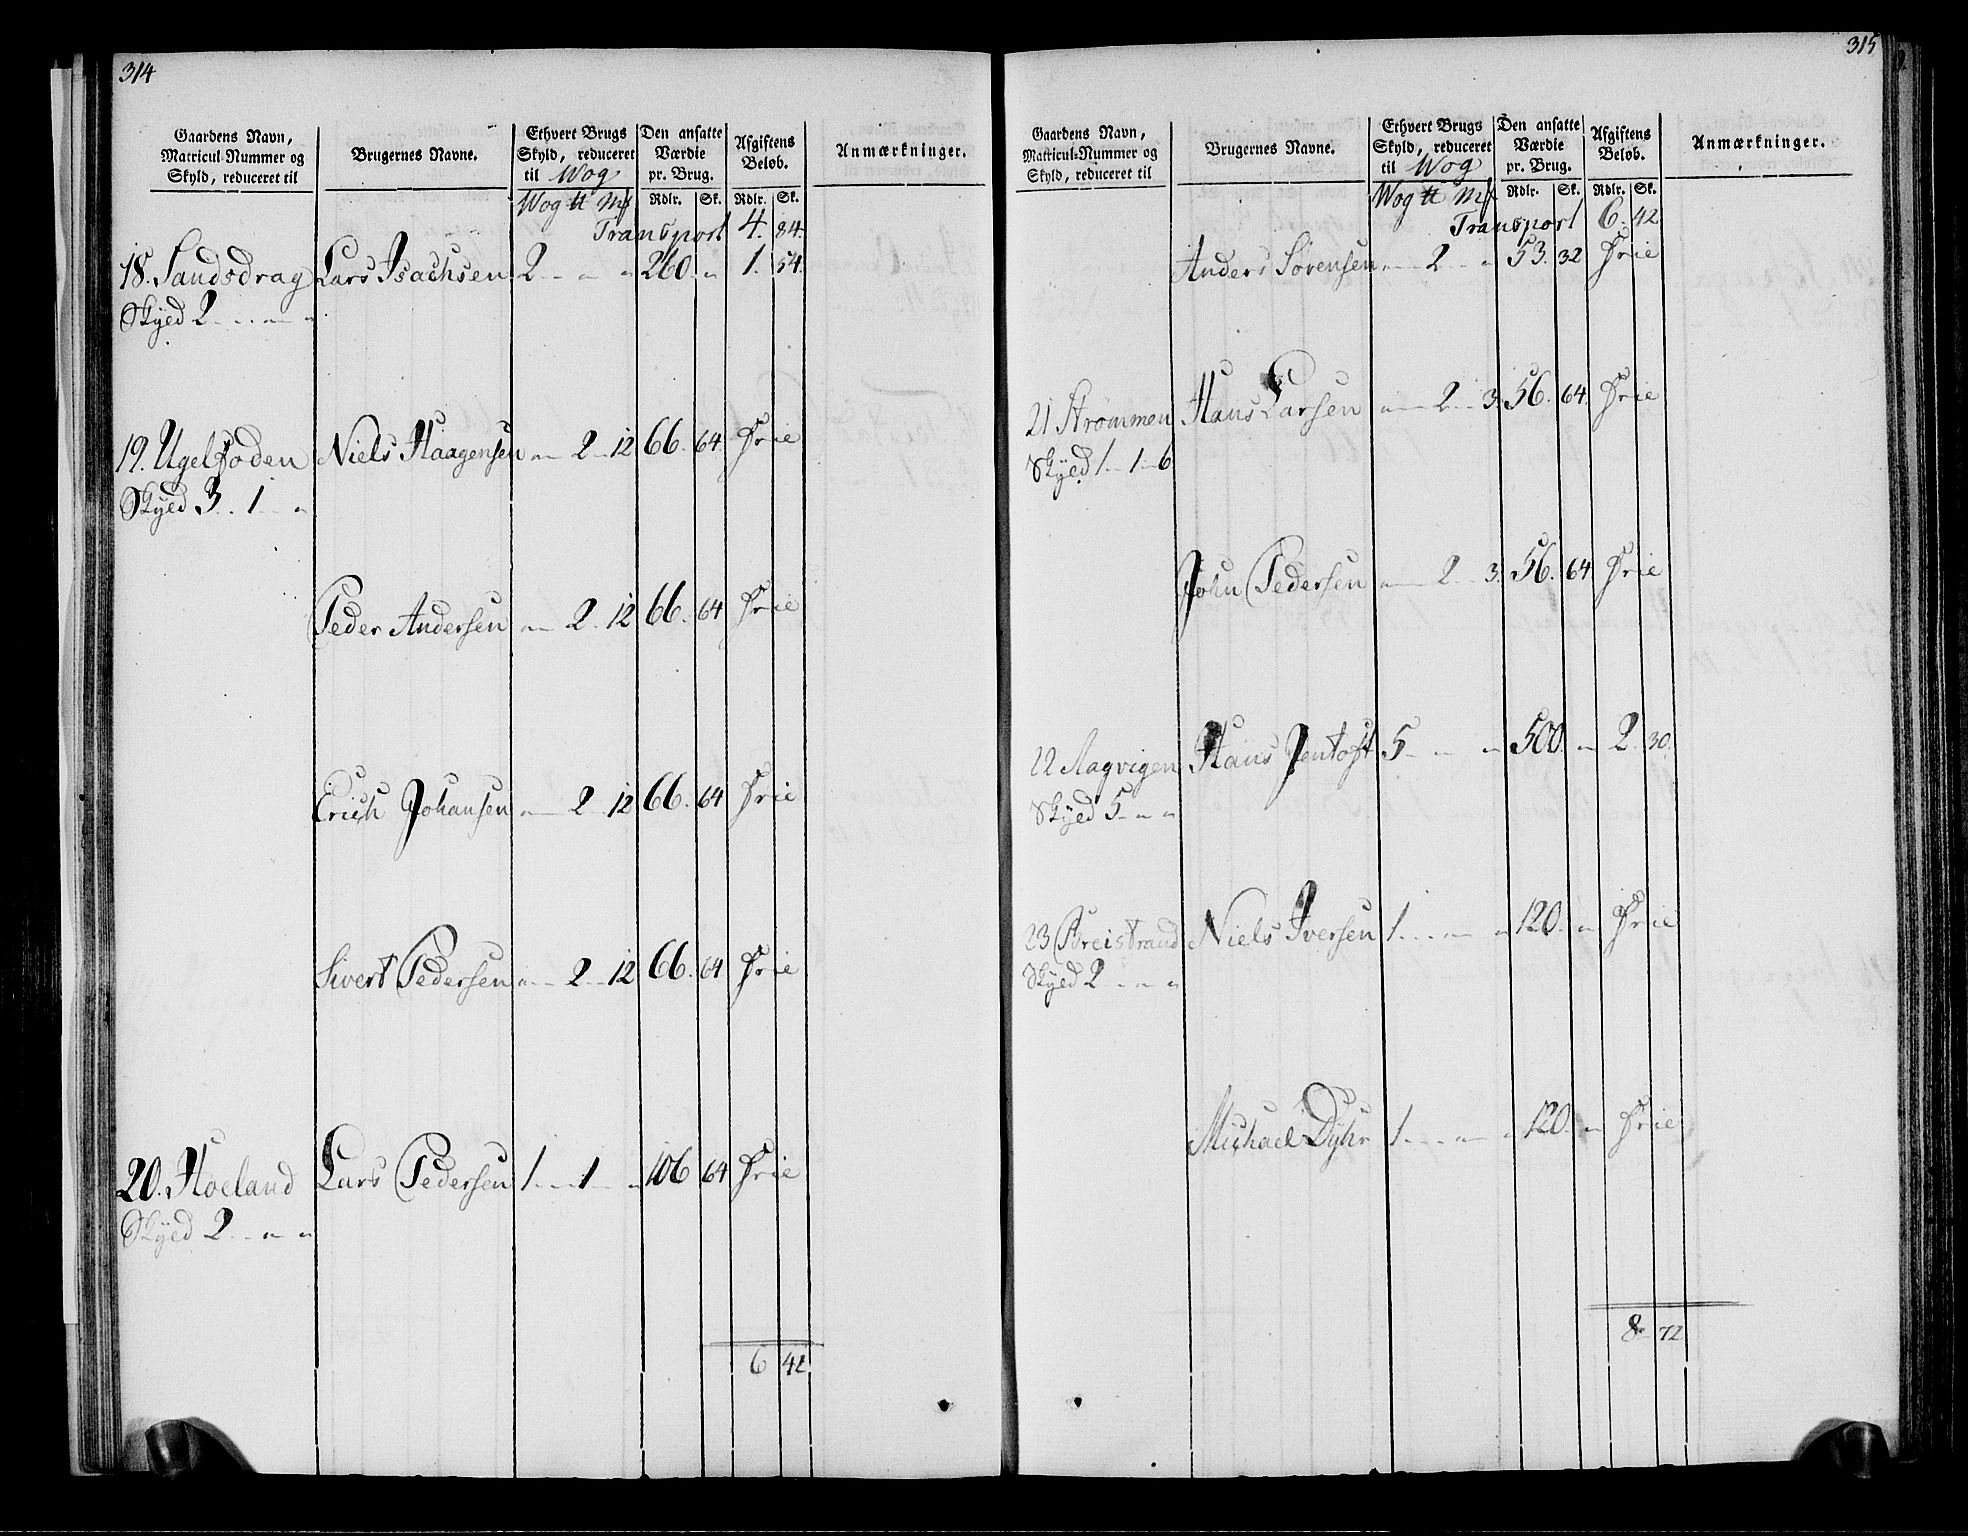 314
Gaardens Navn, Matricul-Nummer og Skyld, reduceret til | Brugernes Navne. | Ethvert Brugs Skyld, reduceret til Wog | Den ansatte Værdie pr. Brug. | Afgiftens Beløb. | Anmærkninger.
Wog ℔ Mk | Rdlr. | Sk. | Rdlr. | Sk.
Transport 4. 84.
18. Sandsdrag Lars Isachsen 2 - " - " 260. " 1. 54.
Skyed 2 - " - "
19. Ugelfoden Niels Haagensen " - 2 - 12 66. 64. Frie
Skyed 3 - 1 - "
Peder Andersen " - 2 - 12 66. 64 Frie
Erich Johansen " - 2 - 12 66. 64 Frie
Sivert Pedersen " - 2 - 12 66. 64 Frie
20. Hoeland Lars Pedersen 1 - 1 - " 106 64 Frie
Skyed 2 - " - "
6 42
315
Gaardens Navn, Matricul-Nummer og Skyld, reduceret til | Brugernes Navne. | Ethvert Brugs Skyld, reduceret til Wog | Den ansatte Værdie pr. Brug. | Afgiftens Beløb. | Anmærkninger.
Wog ℔ Mk | Rdlr. | Sk. | Rdlr. | Sk.
Transport 6. 42
Anders Sørensen " - 2 - " 53. 32 Frie
21 Strømmen Hans Larsen " - 2 - 3. 56. 64. Frie
Skyed 1 - 1 - 6
John Pedersen " - 2 - 3. 56. 64 Frie
22 Aagvigen Hans Jentoft 5 - " - " 500. " 2. 30.
Skyed 5 - " - "
23 Breistrand Niels Iversen 1 - " - " 120. " Frie
Skyed 2 - " - "
Michael Dyhr 1 - " - " 120. " Frie
8 72